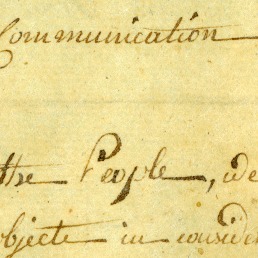 Communication
the People, we
objects in consider